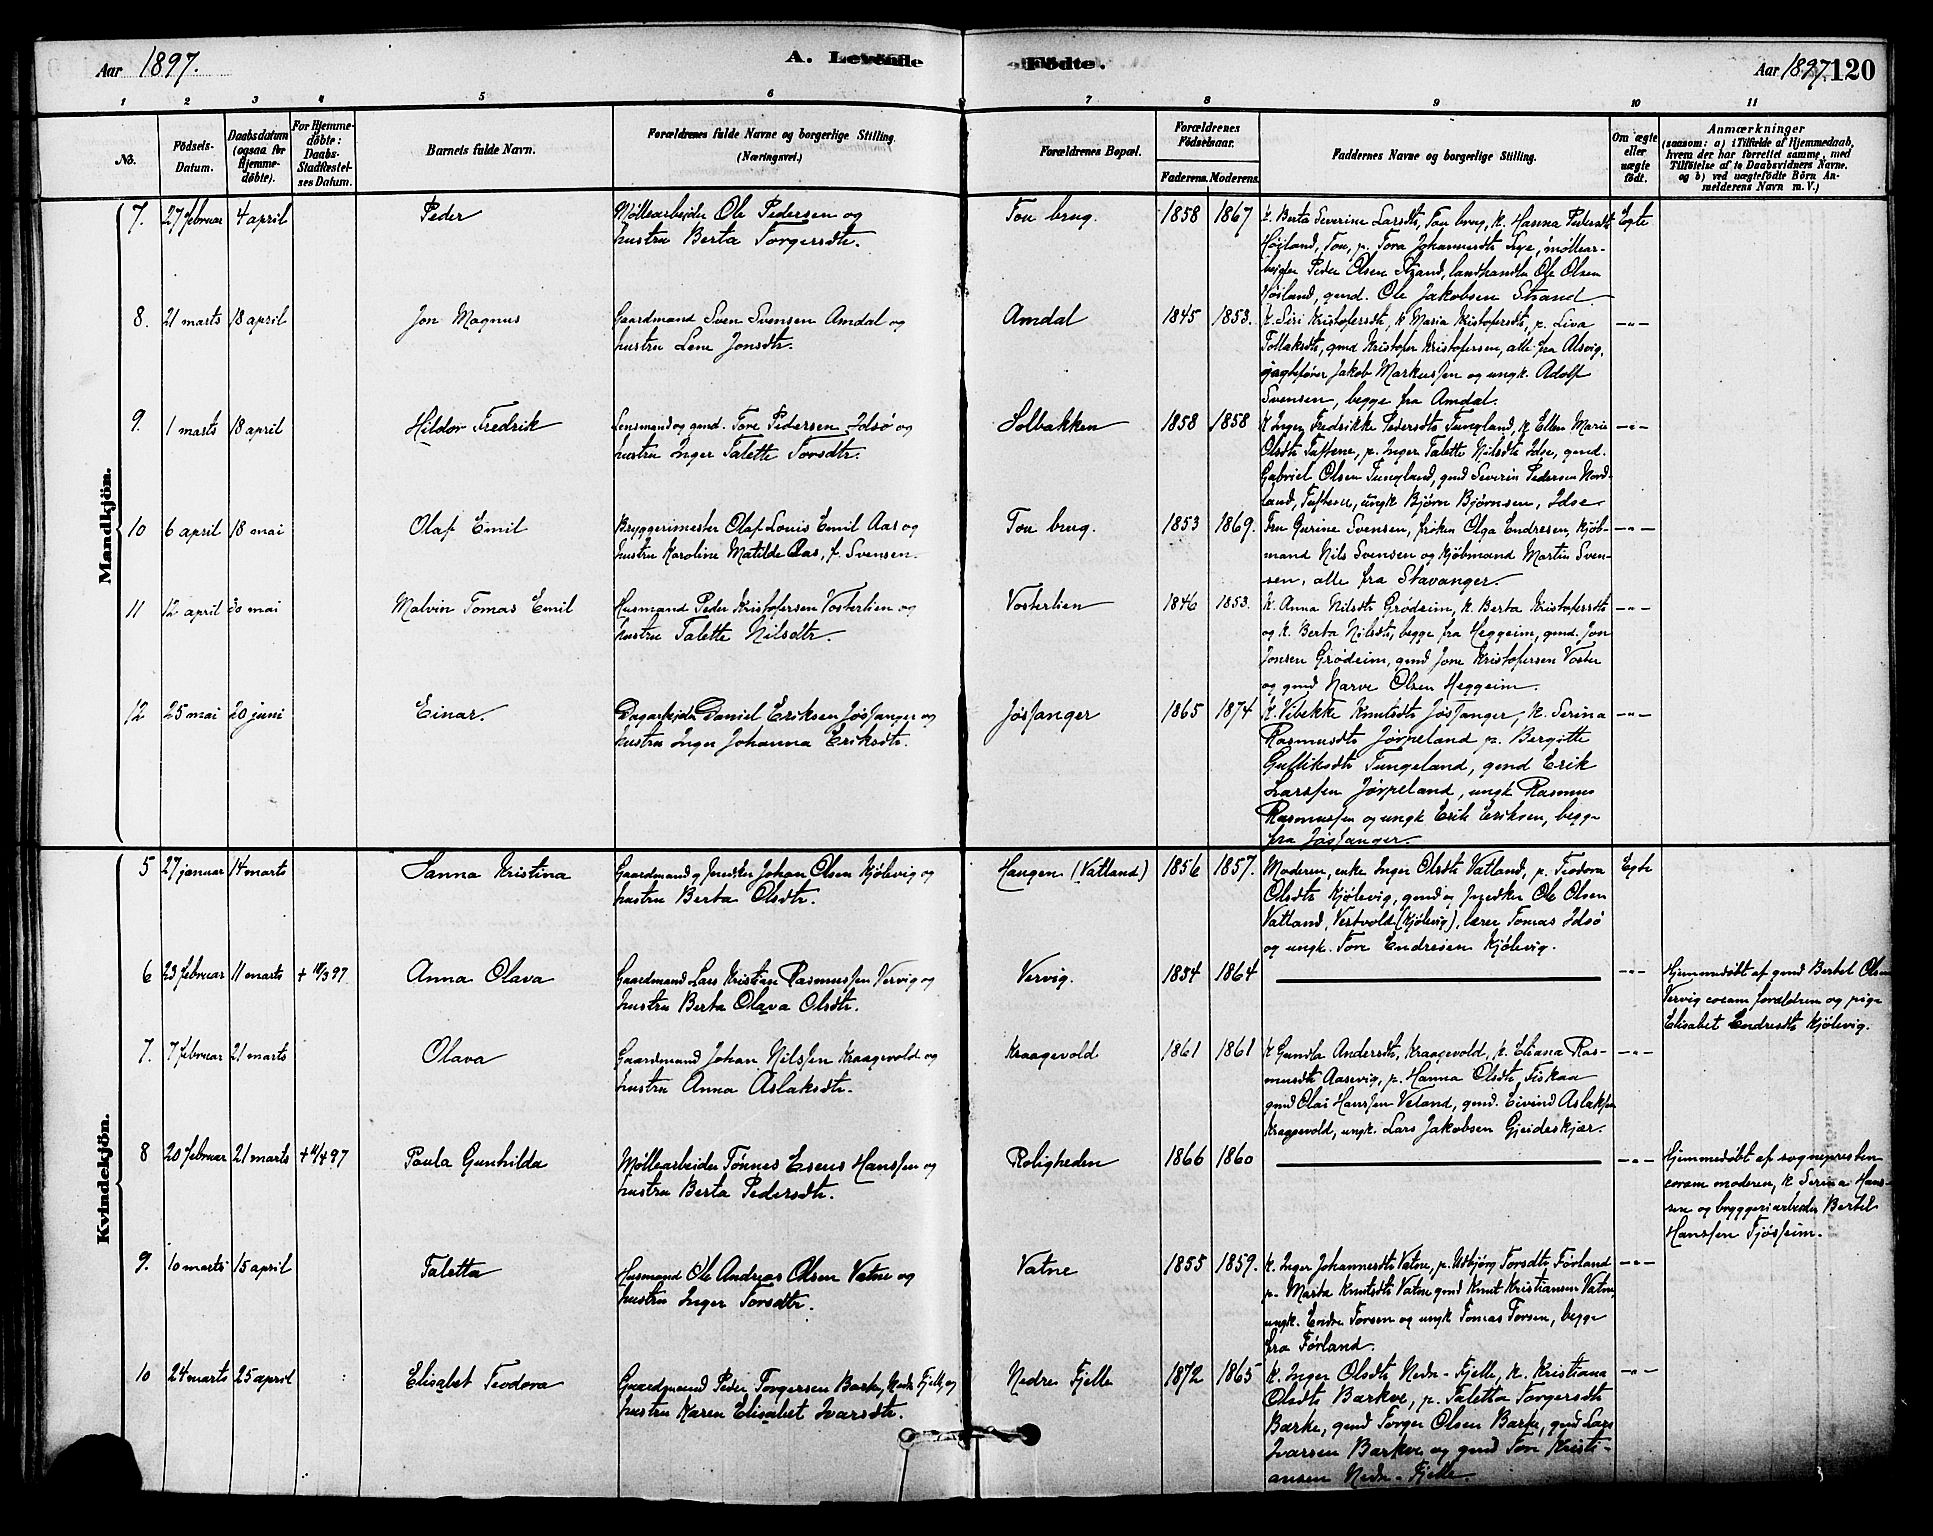 Aar 1897. A. Levende Födte. Aar 1897. 120
1 2 3 4 5 6 7 8 9 10 11
No. Födsels-Datum. Daabsdatum (ogsaa for Hjemme-döbte). For Hjemme-döbte: Daabs-Stadfæstel-ses Datum. Barnets fulde Navn. Forældrenes fulde Navne og borgerlige Stilling. (Næringsvei.) Forældrenes Bopæl. Forældrenes Födselsaar. Faderens. Moderens. Faddernes Navne og borgerlige Stilling. Om ægte eller uægte födt. Anmærkninger (saasom: a) i Tilfælde af Hjemmedaab, hvem der har forrettet samme, med Tilföielse af to Daabsvidners Navne. og b) ved uægtefödte Börn An-melderens Navn m. V.)
Mandkjön.
7. 27 februar 4 april Peder Møllearbeider Ole Pedersen og Tou brug. 1858 1867 k. Berta Severine Larsdtr, Tou brug, k. Hanna Pedersdtr Egte
hustru Berta Torgersdtr. Høiland, Tou, p. Tora Johannesdtr Lye, møllear-
beider Peder Olsen Strand, landhandler Ole Olsen
Høiland, gmd. Ole Jakobsen Strand
8. 21 marts 18 april Jon Magnus Gaardmand Sven Svensen Amdal og Amdal 1845 1853. k. Siri Kristofersdtr, k Maria Kristofersdtr, p. Liva -"-
hustru Lene Jonsdtr. Tollaksdtr, gmd Kristofer Kristofersen, alle fra Alsvig,
jagtefører Jakob Markussen og ungk. Adolf
Svensen, begge fra Amdal.
9. 1 marts 18 april Hildor Fredrik Lensmand og gmd. Tore Pedersen Idsø og Solbakken 1858 1858 k Inger Fredrikke Pedersdtr Tungland, k. Ellen Marie -"-
hustru Inger Talette Torsdtr. Olsdtr Tuftene, p. Inger Talette Nilsdtr Idse, gmd.
Gabriel Olsen Tungland, gmd Severin Pedersen Nord-
land, Tuftene, ungk Bjørn Bjørnsen, Idse
10 6 april 18 mai Olaf Emil Bryggerimester Olaf Louis Emil Aas og Tou brug. 1853 1869. Fru Gurine Svensen, frøken Olga Endresen, kjøb- -"-
hustru Karoline Matilde Aas, f. Svensen. mand Nils Svensen og kjøbmand Martin Sven-
sen, alle fra Stavanger.
11 12 april 30 mai Malvin Tomas Emil Husmand Peder Kristofersen Vosterlien og Vosterlien 1846 1853. k. Anna Nilsdtr Grødeim, k. Berta Kristofersdtr -"-
hustru Talette Nilsdtr. og k. Berta Nilsdtr, begge fra Heggeim, gmd. Jon
Jonsen Grødeim, gmd Jone Kristofersen Voster
og gmd Narve Olsen Heggeim.
12 25 mai 20 juni Einar. Dagarbeider Daniel Eriksen Jøssanger og Jøssanger 1865 1874 k. Vibekke Knutsdtr Jøssanger, k. Serina -"-
hustru Inger Johanna Eriksdtr. Rasmusdtr Jørpeland p. Bergitte
Gulliksdtr Tungeland, gmd Erik
Larssen Jørpeland, ungk Rasmus
Rasmussen og ungk Erik Eriksen, begge
fra Jøssanger.
Kvindekjön.
5 27 januar 14 marts Sanna Kristina Gaardmand og snedker Johan Olsen Kjølevig og Haugen (Vatland) 1856 1857. Moderen, enke Inger Olsdtr Vatland, p. Teodora Egte
hustru Berta Olsdtr. Olsdtr Kjølevig, gmd og snedker Ole Olsen
Vatland, Vestvold (Kjølevig), lærer Tomas Idsø
og ungk. Tore Endresen Kjølevig.
6 23 februar 11 marts + 18/3 97 Anna Olava Gaardmand Lars Kristian Rasmussen Vervig og Vervig. 1854 1864 -"- Hjemmedøbt af gmd Bertel Olsen
hustru Berta Olava Olsdtr. Vervig coram forældrene og pige
Elisabet Endresdtr Kjølevig.
7. 7 februar 21 marts Olava Gaardmand Johan Nilssen Kraagevold og Kraagevold 1861 1861 k Gundla Andersdtr, Kraagevold, k. Eliana Ras- -"-
hustru Anna Aslaksdtr. musdtr Aasevig, p. Hanna Olsdtr Fiskaa
gmd Olai Hanssen Veland, gmd. Eivind Aslaksen
Kraagevold, ungk. Lars Jakobsen Gjeideskjær.
8 20 februar 21 marts + 11/4 97 Paula Gunhilda Møllearbeider Tønnes Eseus Hanssen og Roligheden 1866 1860 -"- Hjemmedøbt af sognepresten
hustru Berta Pedersdtr. coram moderen, k Serina Hans-
sen og bryggeriarbeider Bertel
Hanssen Fjøsseim.
9. 10 marts 15 april Taletta Husmand Ole Andreas Olsen Vatne og Vatne 1855 1859. k. Inger Johannesdtr Vatne, p. Udbjørg Torsdtr Førland -"-
hustru Inger Torsdtr. p. Marta Knutsdtr Vatne gmd Knut Kristiansen Vatne,
ungk. Endre Torsen og ungk Tomas Torsen, begge
fra Førland.
10 24 marts 25 april Elisabet Teodora Gaardmand Peder Torgersen Barke, Nedre Fjelle, og Nedre Fjelle 1872 1865 k. Inger Olsdtr Nedre-Fjelle, k. Kristiana -"-
hustru Karen Elisabet Ivarsdtr. Olsdtr Barkve, p. Taletta Torgersdtr
Barke, gmd Torger Olsen Barke, gmd Lars
Ivarsen Barkve og gmd Tore Kristi-
ansen Nedre-Fjelle.